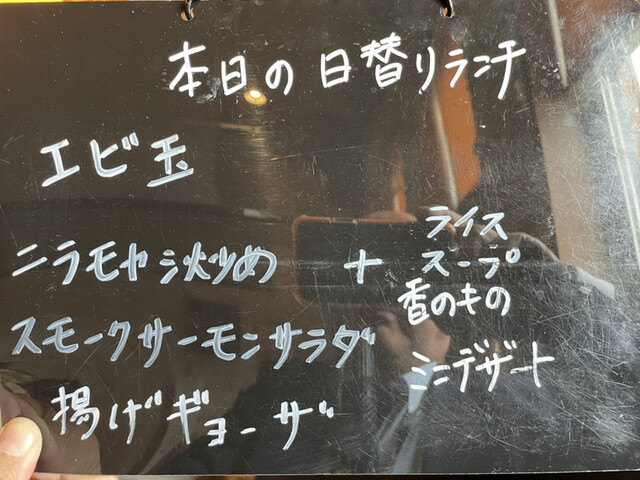 本日の日替りランチ
エビ玉
ニラモヤシ炒め
スモークサーモンサラダ
揚げギョーザ
+
ライス
スープ
香のもの
ミニデザート